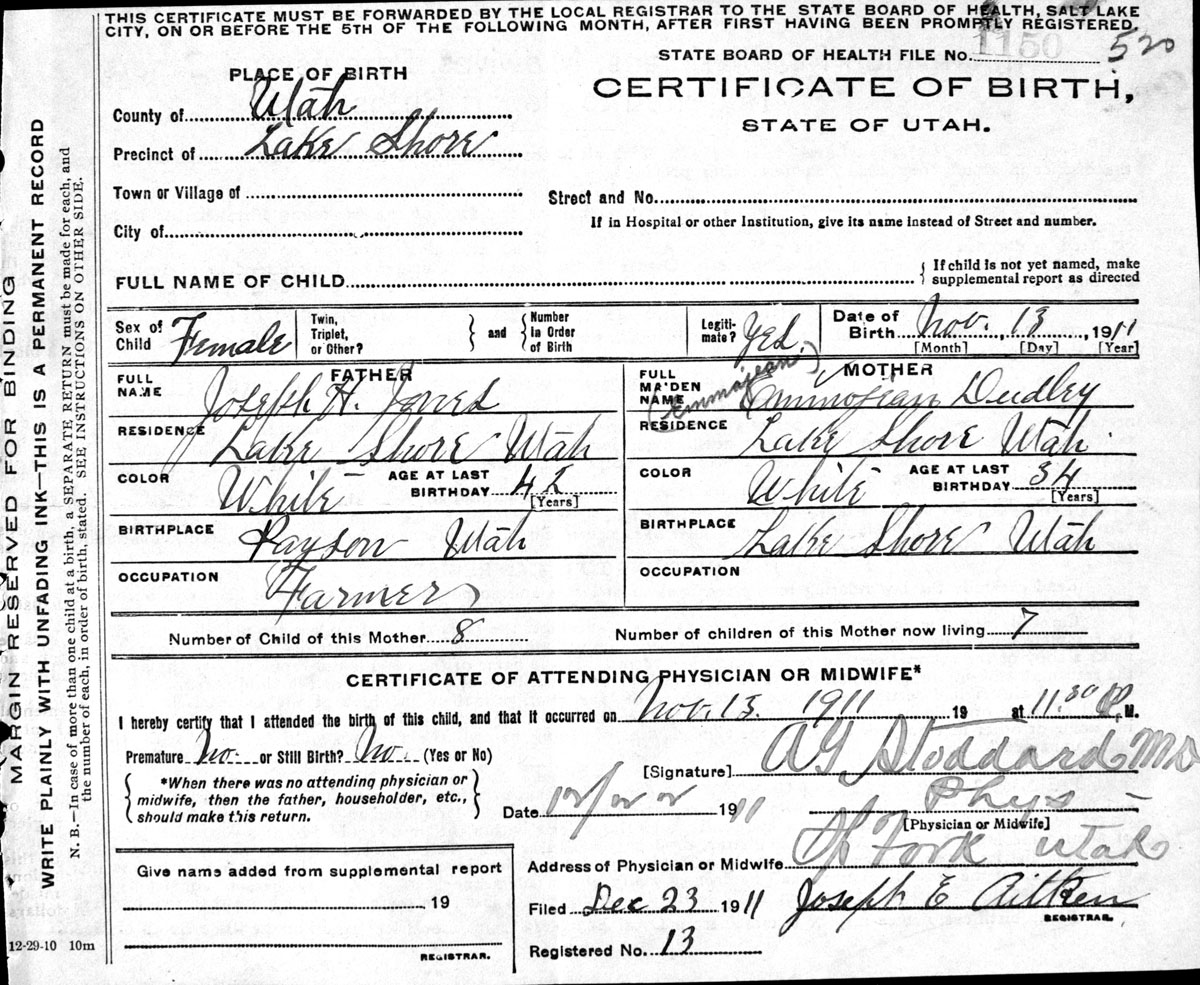 THIS CERTIFICATE MUST BE FORWARDED BY THE LOCAL REGISTRAR TO THE STATE BOARD OF HEALTH, SALT LAKE
CITY, ON OR BEFORE THE 5TH OF THE FOLLOWING MONTH, AFTER FIRST HAVING BEEN PROMPTLY REGISTERED.
STATE BOARD OF HEALTH FILE No. 1150 520
PLACE OF BIRTH
CERTIFICATE OF BIRTH,
STATE OF UTAH.
County of Utah
Precinct of Lake Shore
Town or Village of
Street and No.
City of
If in Hospital or other Institution, give its name instead of Street and number.
FULL NAME OF CHILD
If child is not yet named, make
supplemental report as directed
Sex of Child Female
Twin, Triplet, or Other?
and
Number in Order of Birth
Legiti-mate? Yes.
Date of Birth Nov. 13, 1911
[Month] [Day] [Year]
FATHER
FULL NAME Joseph H. Jones
RESIDENCE Lake Shore Utah
COLOR White
AGE AT LAST BIRTHDAY 42 [Years]
BIRTHPLACE Payson Utah
OCCUPATION Farmer
MOTHER
FULL MAIDEN NAME (Emmajean) Dudley
RESIDENCE Lake Shore Utah.
COLOR White
AGE AT LAST BIRTHDAY 34 [Years]
BIRTHPLACE Lake Shore Utah
OCCUPATION
Number of Child of this Mother 8
Number of children of this Mother now living 7
CERTIFICATE OF ATTENDING PHYSICIAN OR MIDWIFE*
I hereby certify that I attended the birth of this child, and that it occurred on Nov. 13. 1911 19 at 11.30 P. M.
Premature? No. or Still Birth? No. (Yes or No)
[Signature] A G Stoddard M D
*When there was no attending physician or
midwife, then the father, householder, etc.,
should make this return.
Date 12/22 1911
Phys
[Physician or Midwife]
Address of Physician or Midwife Sp Fork Utah
Give name added from supplemental report
19
REGISTRAR.
Filed Dec 23 1911 Joseph E Aitken
REGISTRAR.
Registered No. 13
12-29-10 10m
MARGIN RESERVED FOR BINDING
WRITE PLAINLY WITH UNFADING INK—THIS IS A PERMANENT RECORD
N. B.—In case of more than one child at a birth, a SEPARATE RETURN must be made for each, and
the number of each, in order of birth, stated. SEE INSTRUCTIONS ON OTHER SIDE.